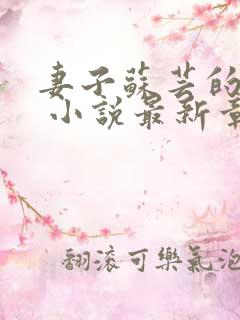 妻子蘇芸的
小說最新章
翻滾可樂氣泡